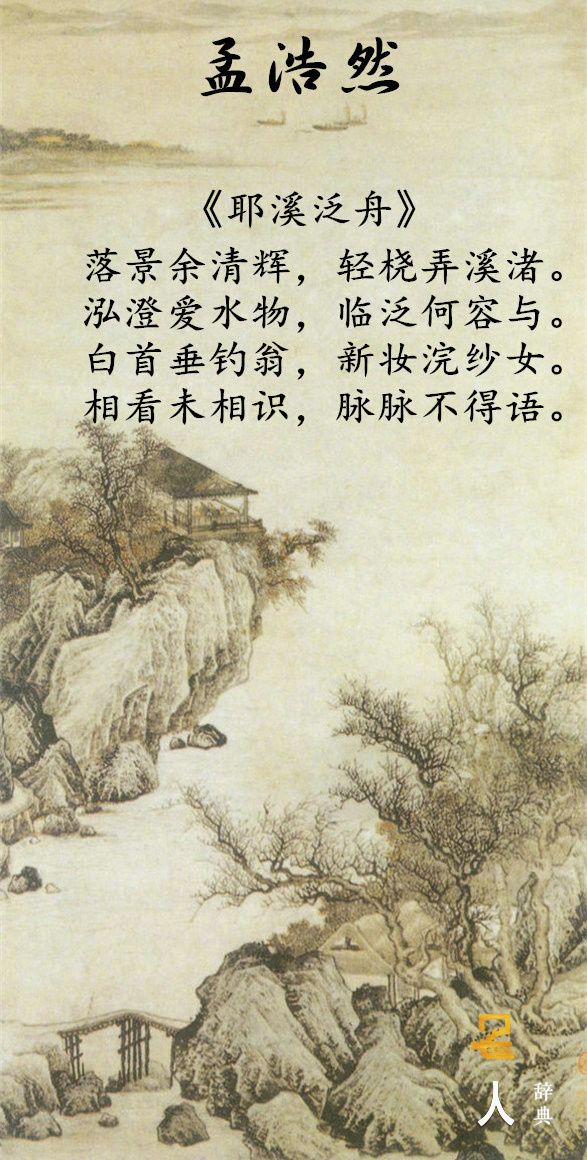 孟浩然
《耶溪泛舟》
落景余清辉，轻桡弄溪渚。
泓澄爱水物，临泛何容与。
白首垂钓翁，新妆浣纱女。
相看未相识，脉脉不得语。
名人
辞典